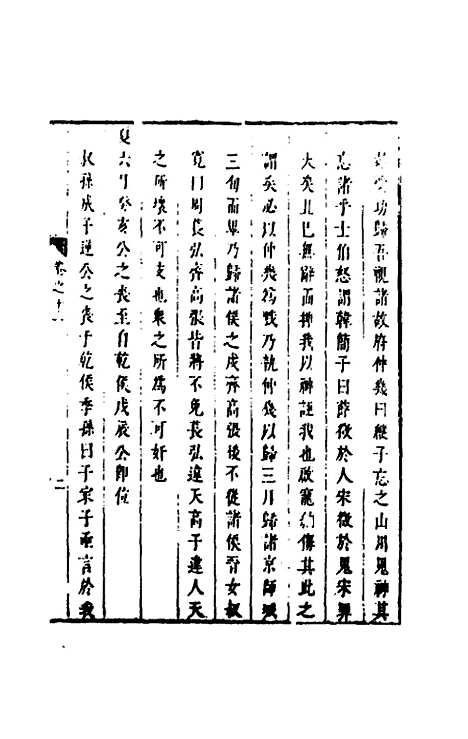 子姑受功歸吾視諸故府仲幾曰縱子忘之山川鬼神其
忘諸乎士伯怒謂韓簡子曰薛徵於人宋徵於鬼宋罪
大矣且己無辭而抑我以神誣我也啟寵納侮其此之
謂矣必以仲幾爲戮乃執仲幾以歸三月歸諸京師城
三旬而畢乃歸諸侯之戍齊高張後不從諸侯晉女叔
寬曰周萇弘齊高張皆將不免萇弘違天高子違人天
之所壞不可支也衆之所爲不可奸也
夏六月癸亥公之喪至自乾侯戊辰公卽位
叔孫成子逆公之喪于乾侯季孫曰子家子亟言於我
卷之十
二